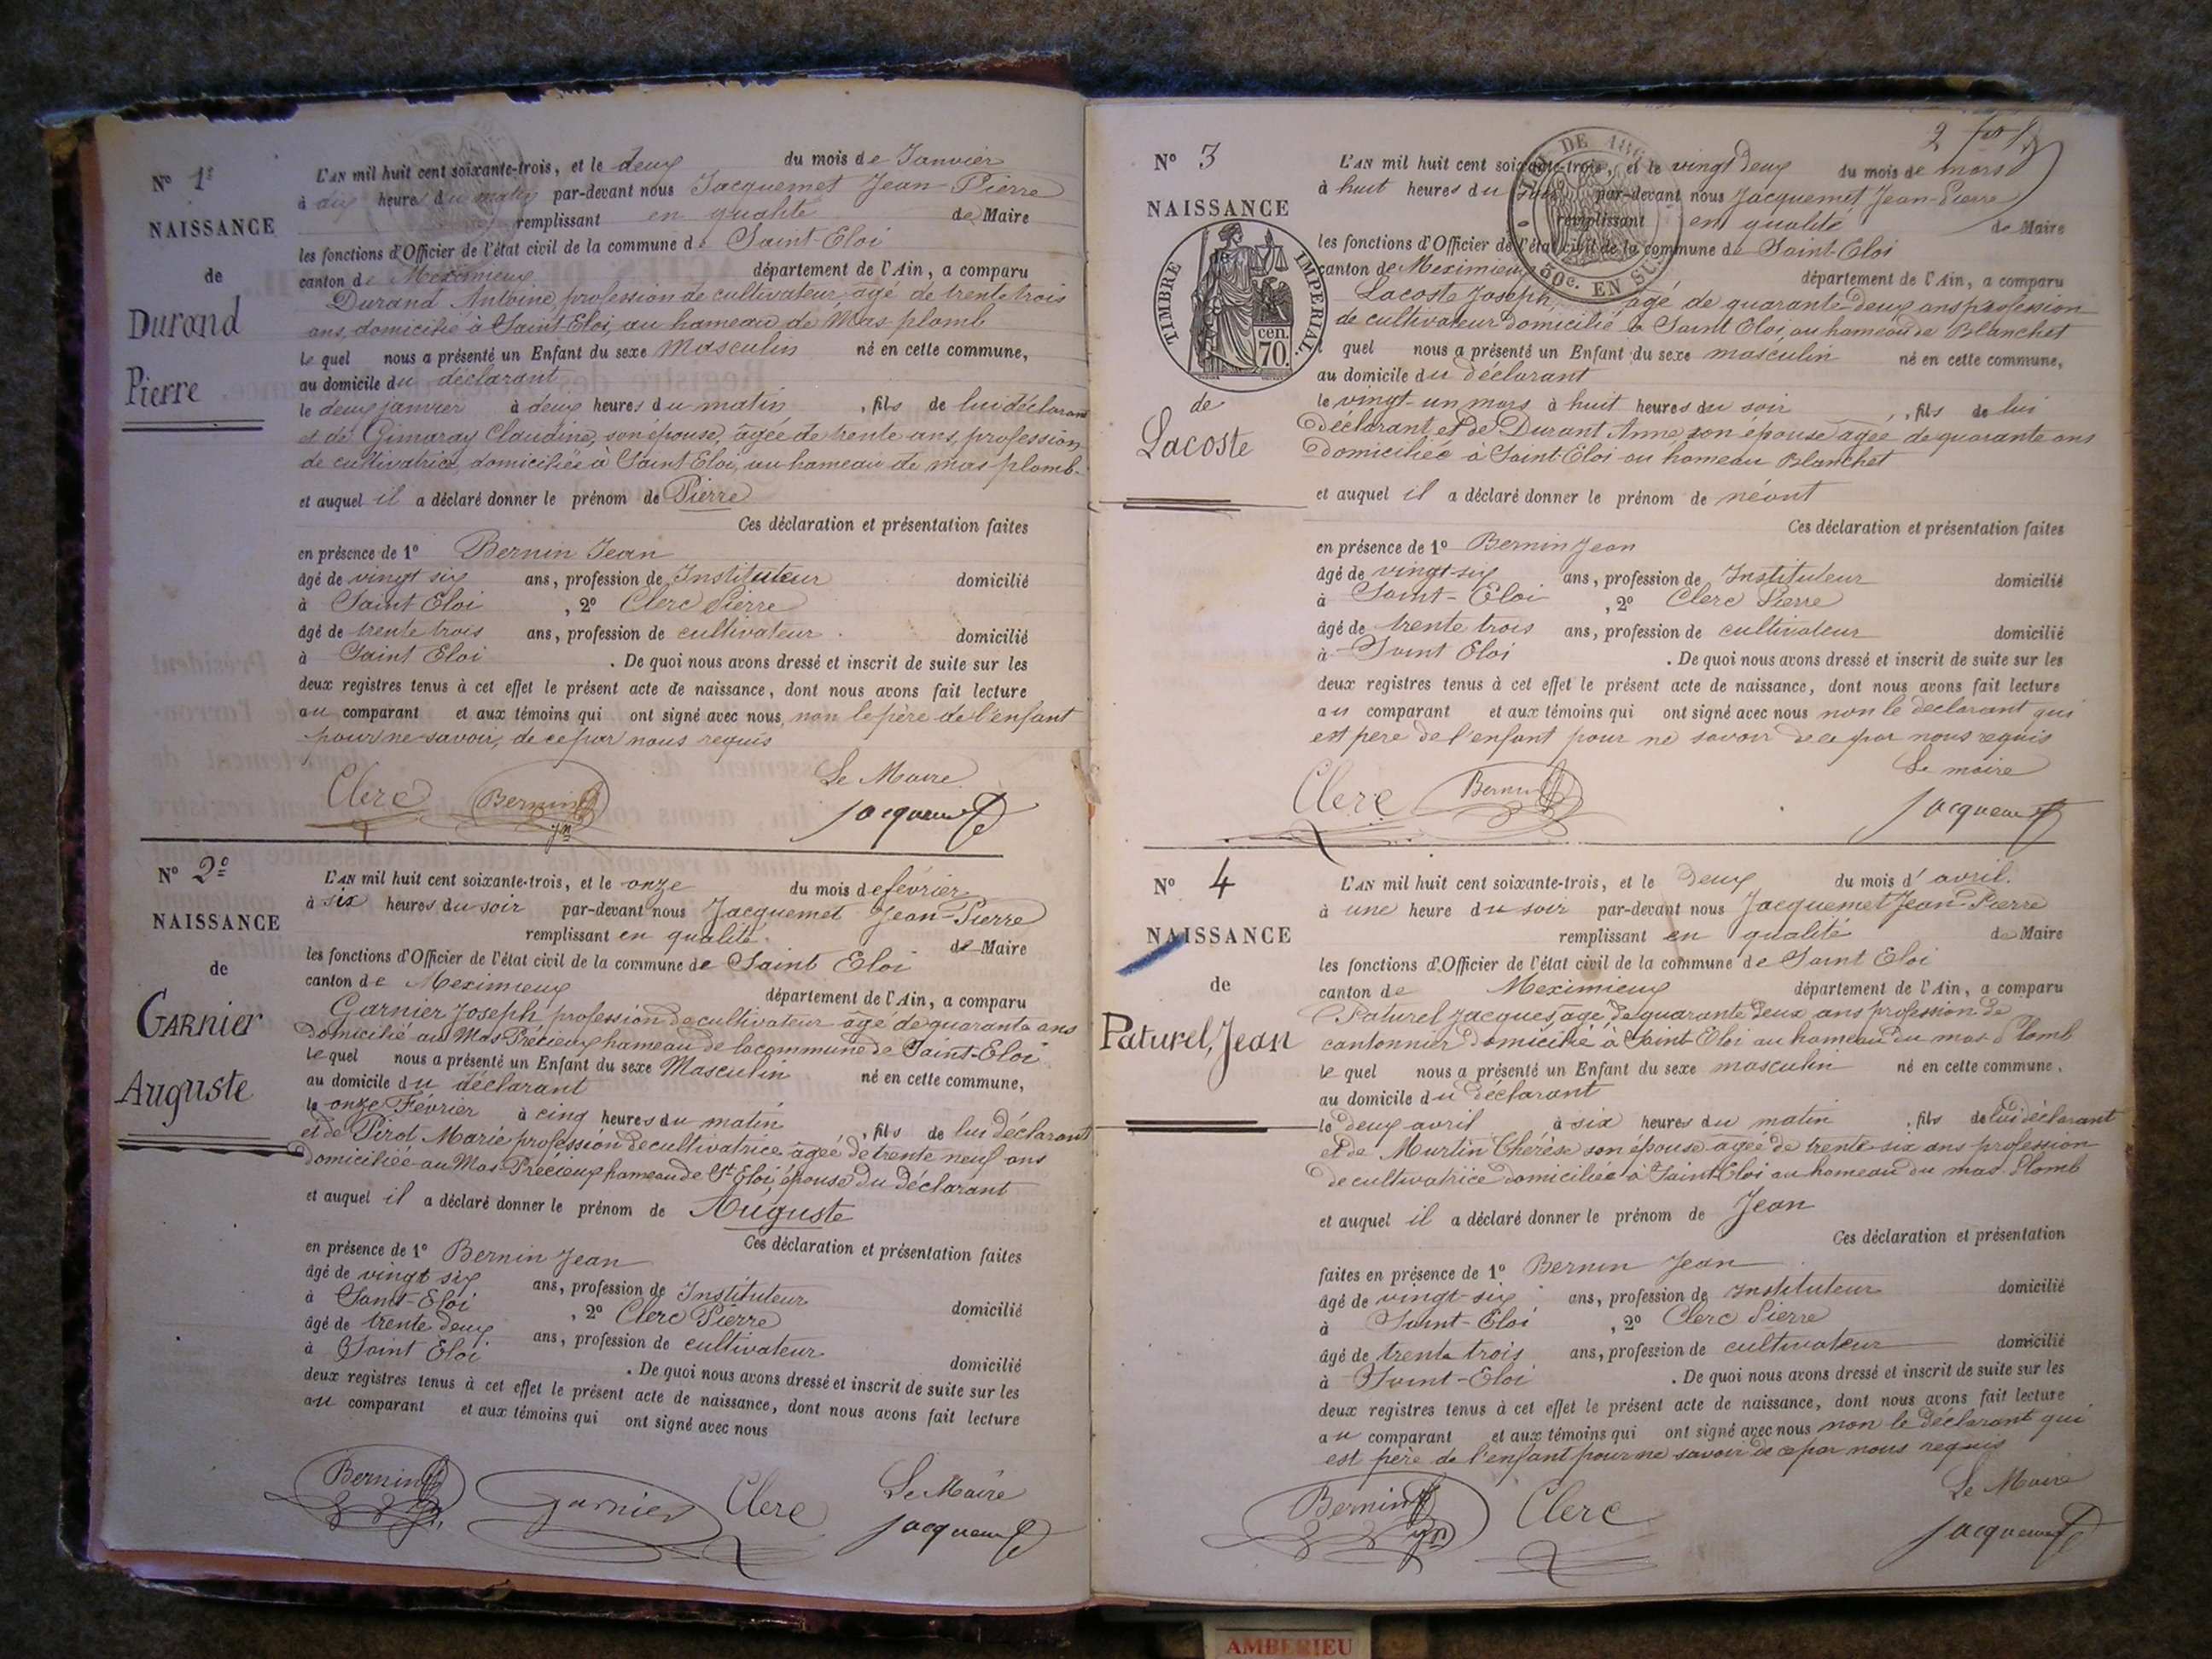 Nº 1º
NAISSANCE
de
Durand
Pierre
L'AN mil huit cent soixante-trois, et le deux du mois de Janvier
à dix heures du matin par-devant nous Jacquemet Jean-Pierre
remplissant en qualité de Maire
les fonctions d'Officier de l'état civil de la commune de Saint-Eloi
canton de Meximieux département de l'Ain, a comparu
Durand Antoine, profession de cultivateur, agé de trente trois
ans, domicilié à Saint Eloi, au hameau de Mas plomb
le quel nous a présenté un Enfant du sexe Masculin né en cette commune,
au domicile du déclarant
le deux janvier à deux heures du matin, fils de lui déclarant
et de Gimaray Claudine, son épouse, âgée de trente ans, profession
de cultivatrice, domiciliée à Saint Eloi, au hameau de mas plomb
et auquel il a déclaré donner le prénom de Pierre
Ces déclaration et présentation faites
en présence de 1º Bernin Jean
âgé de vingt six ans, profession de Instituteur domicilié
à Saint Eloi, 2º Clerc Pierre
âgé de trente trois ans, profession de cultivateur domicilié
à Saint Eloi. De quoi nous avons dressé et inscrit de suite sur les
deux registres tenus à cet effet le présent acte de naissance, dont nous avons fait lecture
au comparant et aux témoins qui ont signé avec nous, non le père de l'enfant
pour ne savoir, de ce par nous requis
Le Maire
Clerc Bernin Jacquemet
Nº 2º
NAISSANCE
de
GARnier
Auguste
L'AN mil huit cent soixante-trois, et le onze du mois de février
à six heures du soir par-devant nous Jacquemet Jean-Pierre
remplissant en qualité de Maire
les fonctions d'Officier de l'état civil de la commune de Saint Eloi
canton de Meximieux département de l'Ain, a comparu
Garnier Joseph profession de cultivateur âgé de quarante ans
Domicilié au Mas-Précieux hameau de la commune de Saint-Eloi
le quel nous a présenté un Enfant du sexe Masculin né en cette commune,
au domicile du déclarant
le onze Février à cinq heures du matin, fils de lui Déclarant
et de Pirot Marie profession de cultivatrice agée de trente neuf ans
domiciliée au Mas-Précieux hameau de St Eloi, épouse du Déclarant
et auquel il a déclaré donner le prénom de Auguste
Ces déclaration et présentation faites
en présence de 1º Bernin Jean
âgé de vingt six ans, profession de Instituteur domicilié
à Saint-Eloi, 2º Clerc Pierre
âgé de trente deux ans, profession de cultivateur domicilié
à Saint Eloi. De quoi nous avons dressé et inscrit de suite sur les
deux registres tenus à cet effet le présent acte de naissance, dont nous avons fait lecture
au comparant et aux témoins qui ont signé avec nous
Le Maire
Bernin Garnier Clerc Jacquemet
2
Nº 3
NAISSANCE
TIMBRE IMPERIAL.
cen. 70.
de
Lacoste
50c. EN SUS
L'AN mil huit cent soixante-trois, et le vingt deux du mois de mars
à huit heures du par-devant nous Jacquemet Jean-Pierre
remplissant en qualité de Maire
les fonctions d'Officier de l'état civil de la commune de Saint-Eloi
canton de Meximieux département de l'Ain, a comparu
Lacoste Joseph, agé de quarante-deux ans profession
de cultivateur domicilié à Saint Eloi, au hameau de Blanchet
quel nous a présenté un Enfant du sexe masculin né en cette commune,
au domicile du déclarant
le vingt-un mars à huit heures du soir, fils de lui
Déclarant et de Durant Anne son épouse agée de quarante ans
Domiciliée à Saint-Eloi au hameau Blanchet
et auquel il a déclaré donner le prénom de néant
Ces déclaration et présentation faites
en présence de 1º Bernin Jean
âgé de vingt-six ans, profession de Instituteur domicilié
à Saint-Eloi, 2º Clerc Pierre
âgé de trente trois ans, profession de cultivateur domicilié
à Saint Eloi. De quoi nous avons dressé et inscrit de suite sur les
deux registres tenus à cet effet le présent acte de naissance, dont nous avons fait lecture
au comparant et aux témoins qui ont signé avec nous non le declarant qui
est pere de l'enfant pour ne savoir de ce par nous requis
Le maire
Clerc Bernin Jacquemet
Nº 4
NAISSANCE
de
Paturel, Jean
L'AN mil huit cent soixante-trois, et le Deux du mois d'avril.
à une heure du soir par-devant nous Jacquemet Jean-Pierre
remplissant en qualité de Maire
les fonctions d'Officier de l'état civil de la commune de Saint Eloi
canton de Meximieux département de l'Ain, a comparu
Paturel Jacques, agé de quarante deux ans profession de
cantonnier domicilié à Saint-Eloi au hameau du mas-Plomb
le quel nous a présenté un Enfant du sexe masculin né en cette commune,
au domicile du Déclarant
le deux avril à six heures du matin, fils de lui déclarant
et de Murtin Thérèse son épouse agée de trente-six ans profession
de cultivatrice domiciliée à Saint Eloi au hameau du mas-Plomb
et auquel il a déclaré donner le prénom de Jean
Ces déclaration et présentation
faites en présence de 1º Bernin Jean
âgé de vingt-six ans, profession de Instituteur domicilié
à Saint-Eloi, 2º Clerc Pierre
âgé de trente trois ans, profession de cultivateur domicilié
à Saint-Eloi. De quoi nous avons dressé et inscrit de suite sur les
deux registres tenus à cet effet le présent acte de naissance, dont nous avons fait lecture
au comparant et aux témoins qui ont signé avec nous non le Déclarant qui
est père de l'enfant pour ne savoir de ce par nous requis
Le Maire
Bernin Clerc Jacquemet
AMBERIEU